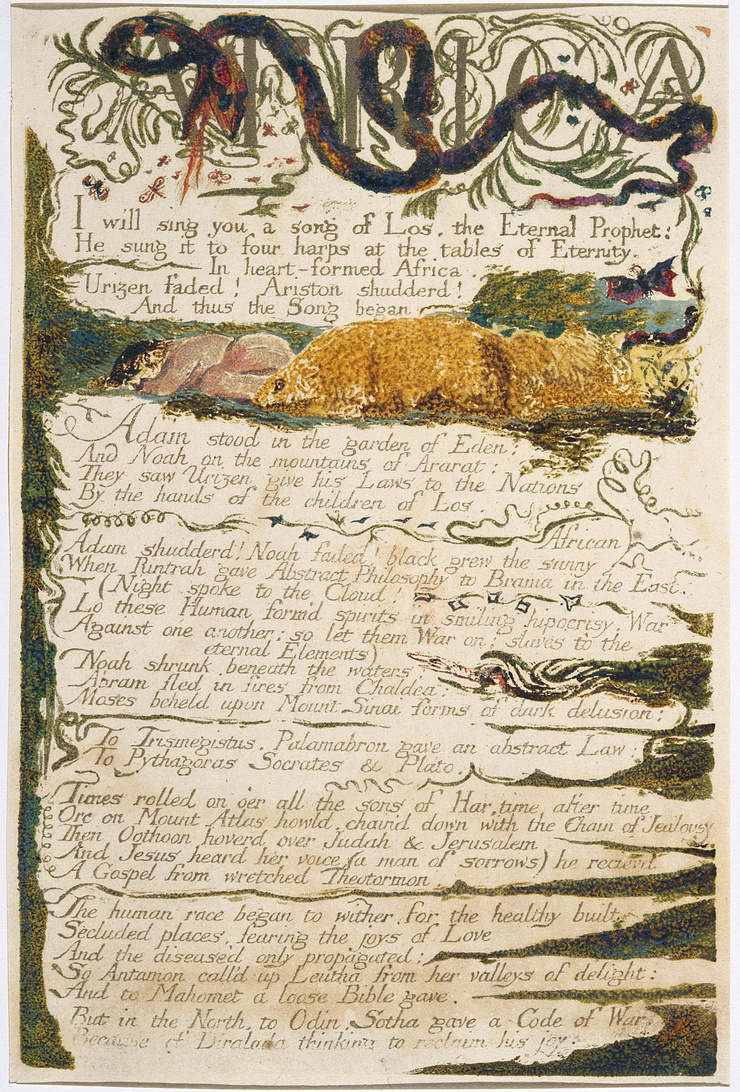 AFRICA
I will sing you a song of Los, the Eternal Prophet:
He sung it to four harps at the tables of Eternity.
In heart-formed Africa.
Urizen faded! Ariston shudderd!
And thus the Song began
Adam stood in the garden of Eden:
And Noah on the mountains of Ararat:
They saw Urizen give his Laws to the Nations
By the hands of the children of Los.
African
Adam shudderd! Noah faded! black grew the sunny
When Rintrah gave Abstract Philosophy to Brama in the East:
(Night spoke to the Cloud!
Lo these Human form'd spirits in smiling hipocrisy. War
Against one another; so let them War on; slaves to the
eternal Elements)
Noah shrunk, beneath the waters;
Abram fled in fires from Chaldea;
Moses beheld upon Mount Sinai forms of dark delusion:
To Trismegistus. Palamabron gave an abstract Law:
To Pythagoras Socrates & Plato.
Times rolled on o'er all the sons of Har, time after time
Orc on Mount Atlas howld, chain'd down with the Chain of Jealousy
Then Oothoon hoverd over Judah & Jerusalem
And Jesus heard her voice (a man of sorrows) he recievd
A Gospel from wretched Theotormon.
The human race began to wither, for the healthy built
Secluded places, fearing the joys of Love
And the diseased only propagated:
So Antamon call'd up Leutha from her valleys of delight:
And to Mahomet a loose Bible gave.
But in the North, to Odin, Sotha gave a Code of War,
Because of Diralada thinking to reclaim his joy.